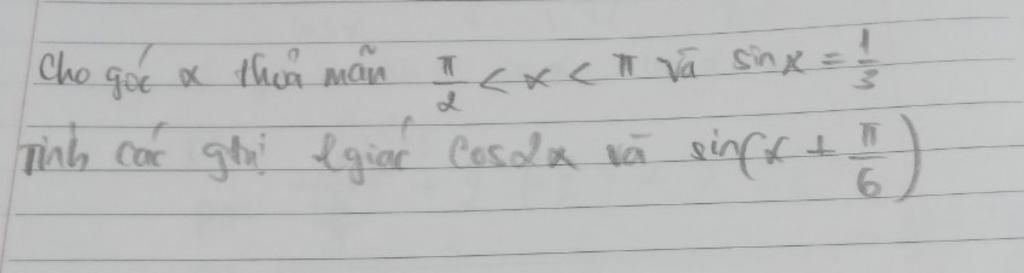 Cho góc α thoả mãn π/2 < α < π và sinα = 1/3
Tính các gtri lgiác cos2α và sin(α + π/6)